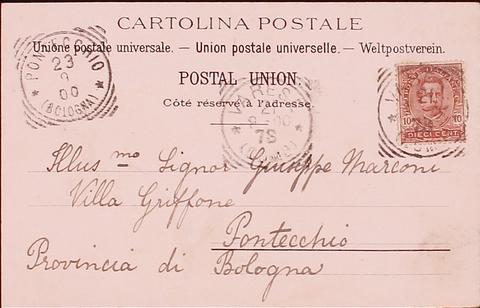 CARTOLINA POSTALE
Unione postale universale. — Union postale universelle. — Weltpostverein.
POSTAL UNION.
Côté réservé à l'adresse.
PONTECCHIO
23
8
00
(BOLOGNA)
VARESE
21
78
10 10
DIECI CENT.
Illus mo Signor Giuseppe Marconi
Villa Griffone
Pontecchio
Provincia di Bologna